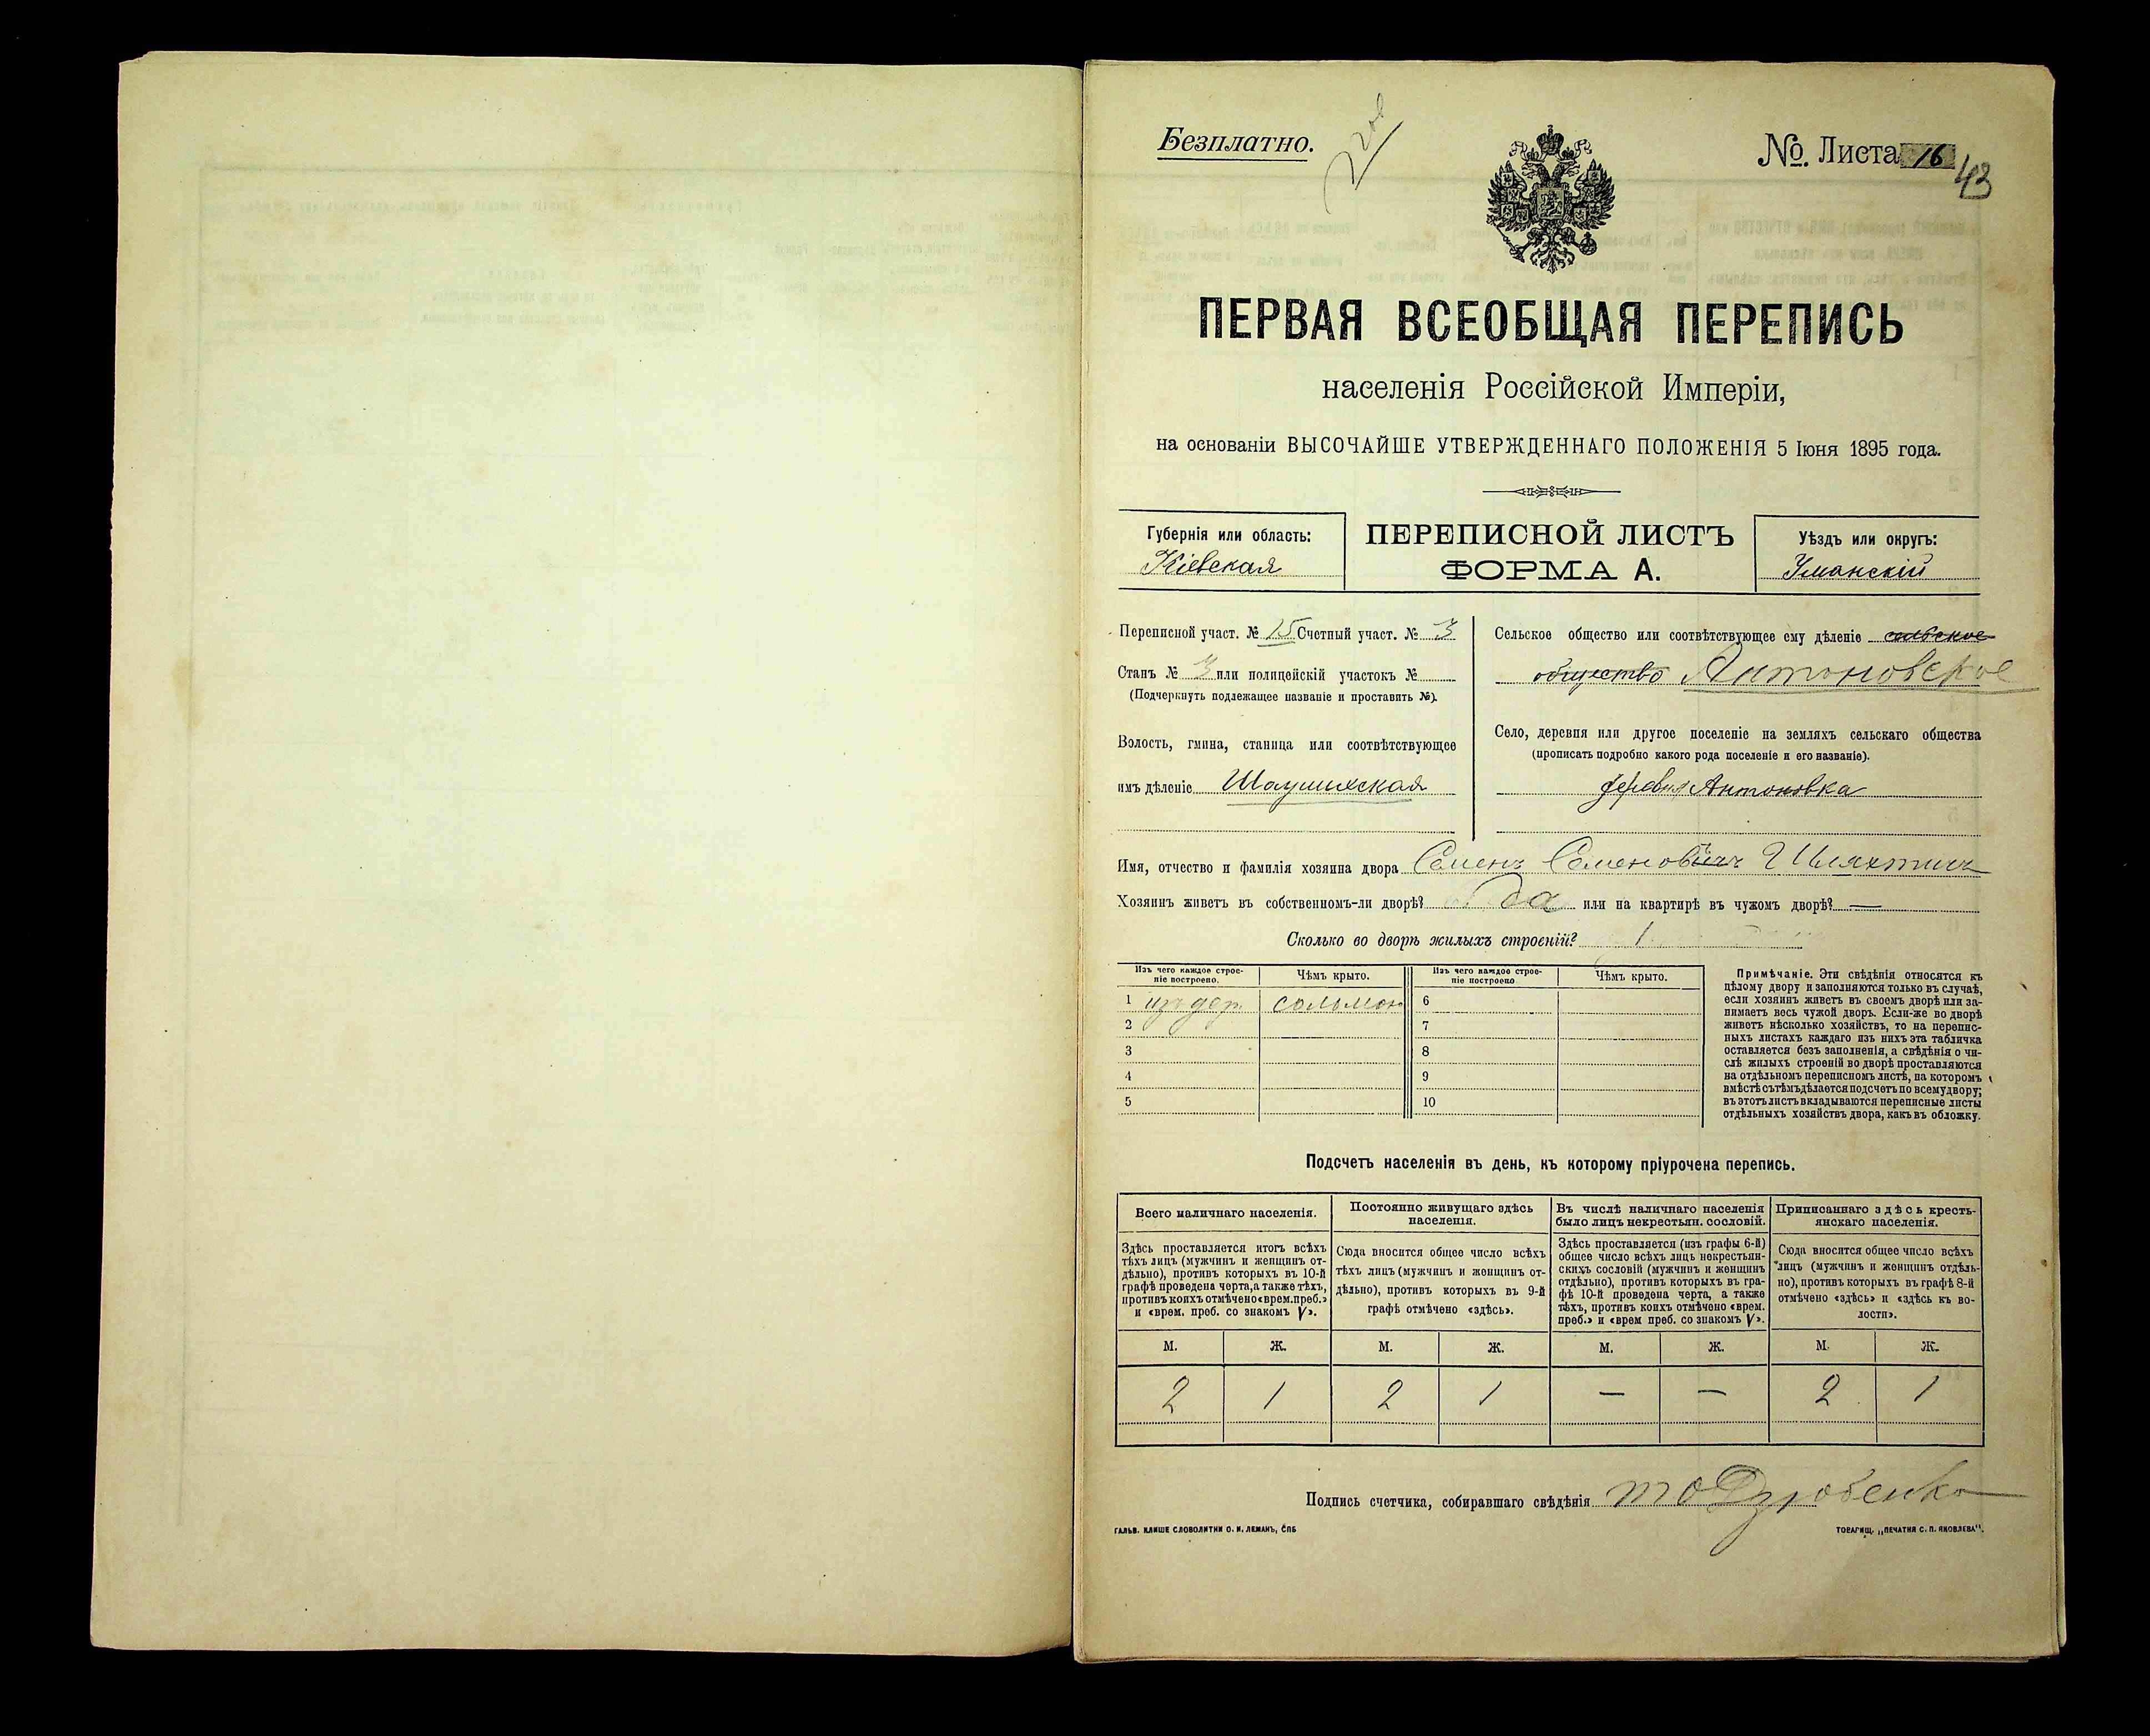 Безплатно.
№. Листа 16
43
ПЕРВАЯ ВСЕОБЩАЯ ПЕРЕПИСЬ
населенія Россійской Имперіи,
на основаніи ВЫСОЧАЙШЕ УТВЕРЖДЕННАГО ПОЛОЖЕНІЯ 5 Іюня 1895 года.
Губернія или область:
Кіевская
ПЕРЕПИСНОЙ ЛИСТЪ
ФОРМА А.
Уѣздъ или округъ:
Уманскій
Переписной участ. № 15 Счетный участ. № 3
Станъ № 3 или полицейскій участокъ №
(Подчеркнуть подлежащее названіе и проставить №).
Волость, гмина, станица или соотвѣтствующее
имъ дѣленіе
Сельское общество или соотвѣтствующее ему дѣленіе сельское
общество Антоновское
Село, деревня или другое поселеніе на земляхъ сельскаго общества
(прописать подробно какого рода поселеніе и его названіе).
деревня Антоновка
Имя, отчество и фамилія хозяина двора Семенъ Семеновичъ Шляхтичъ
Хозяинъ живетъ въ собственномъ-ли дворѣ? Да или на квартирѣ въ чужомъ дворѣ? —
Сколько во дворѣ жилыхъ строеній? 1
Изъ чего каждое строе-
ніе построено.
Чѣмъ крыто.
Изъ чего каждое строе-
ніе построено
Чѣмъ крыто.
1 изъ дер. 6
2 7
3 8
4 9
5 10
Примѣчаніе. Эти свѣдѣнія относятся къ
цѣлому двору и заполняются только въ случаѣ,
если хозяинъ живетъ въ своемъ дворѣ или за-
нимаетъ весь чужой дворъ. Если-же во дворѣ
живетъ нѣсколько хозяйствъ, то на перепис-
ныхъ листахъ каждаго изъ нихъ эта табличка
оставляется безъ заполненія, а свѣдѣнія о чи-
слѣ жилыхъ строеній во дворѣ проставляются
на отдѣльномъ переписномъ листѣ, на которомъ
вмѣстѣ съ тѣмъ дѣлается подсчетъ по всему двору;
въ этотъ листъ вкладываются переписные листы
отдѣльныхъ хозяйствъ двора, какъ въ обложку.
Подсчетъ населенія въ день, къ которому пріурочена перепись.
Всего наличнаго населенія.
Здѣсь проставляется итогъ всѣхъ
тѣхъ лицъ (мужчинъ и женщинъ от-
дѣльно), противъ которыхъ въ 10-й
графѣ проведена черта, а также тѣхъ,
противъ коихъ отмѣчено «врем. преб.»
и «врем. преб. со знакомъ V».
Постоянно живущаго здѣсь
населенія.
Сюда вносится общее число всѣхъ
тѣхъ лицъ (мужчинъ и женщинъ от-
дѣльно), противъ которыхъ въ 9-й
графѣ отмѣчено «здѣсь».
Въ числѣ наличнаго населенія
было лицъ некрестьян. сословій.
Здѣсь проставляется (изъ графы 6-й)
общее число всѣхъ лицъ некрестьян-
скихъ сословій (мужчинъ и женщинъ
отдѣльно), противъ которыхъ въ гра-
фѣ 10-й проведена черта, а также
тѣхъ, противъ коихъ отмѣчено «врем.
преб.» и «врем преб. со знакомъ V».
Приписаннаго здѣсь кресть-
янскаго населенія.
Сюда вносится общее число всѣхъ
лицъ (мужчинъ и женщинъ отдѣль-
но), противъ которыхъ въ графѣ 8-й
отмѣчено «здѣсь» и «здѣсь къ во-
лости».
М. Ж. М. Ж. М. Ж. М. Ж.
2 1 2 1 — — 2 1
Подпись счетчика, собиравшаго свѣдѣнія
ГАЛЬВ. КЛИШЕ СЛОВОЛИТНИ О. И. ЛЕМАНЪ, СПБ
ТОВАРИЩ. „ПЕЧАТНЯ С. П. ЯКОВЛЕВА".